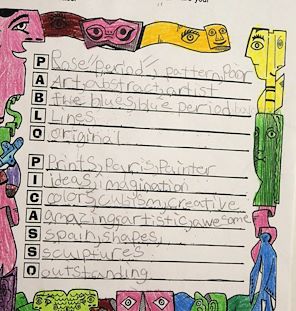 your
P Rose "period", pattern, poor
A Art, abstract, artist
B the blues, blue period,
L Lines
O original
P Prints, Paris, Painter
I ideas, imagination
C colors, cubism, creative
A amazing, artistic, awesome
S spain, shapes,
S sculptures
O outstanding